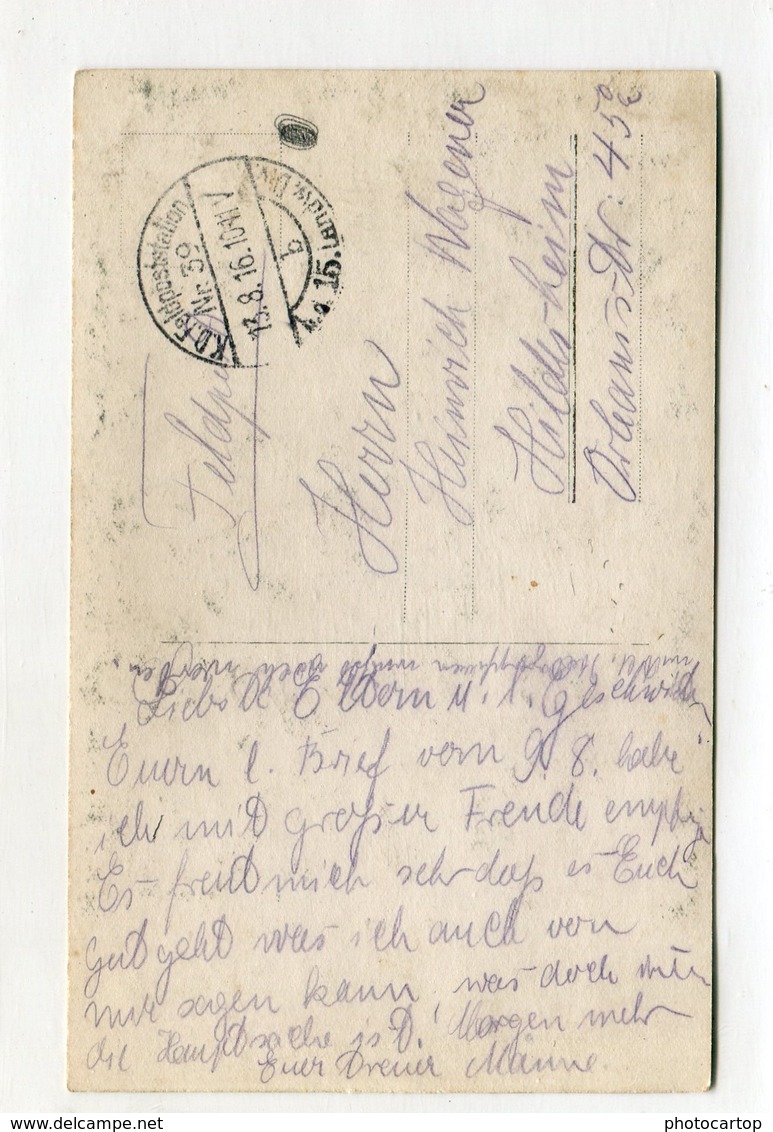 K.D. Feldpoststation
Nr. 39
13.8.16. 10-11 V
b
15. Landw. Div.
Feldpost
Herrn
Heinrich Wagener
Hildesheim
Orleans-Str. 45
Liebste Eltern u. l. Geschwister
Euern l. Brief vom 9. 8. habe
ich mit großer Freude
Es freut mich sehr daß es Euch
gut geht was ich auch von
mir sagen kann, was doch
die Hauptsache ist. Morgen mehr
Euer treuer Männe.
photocartop